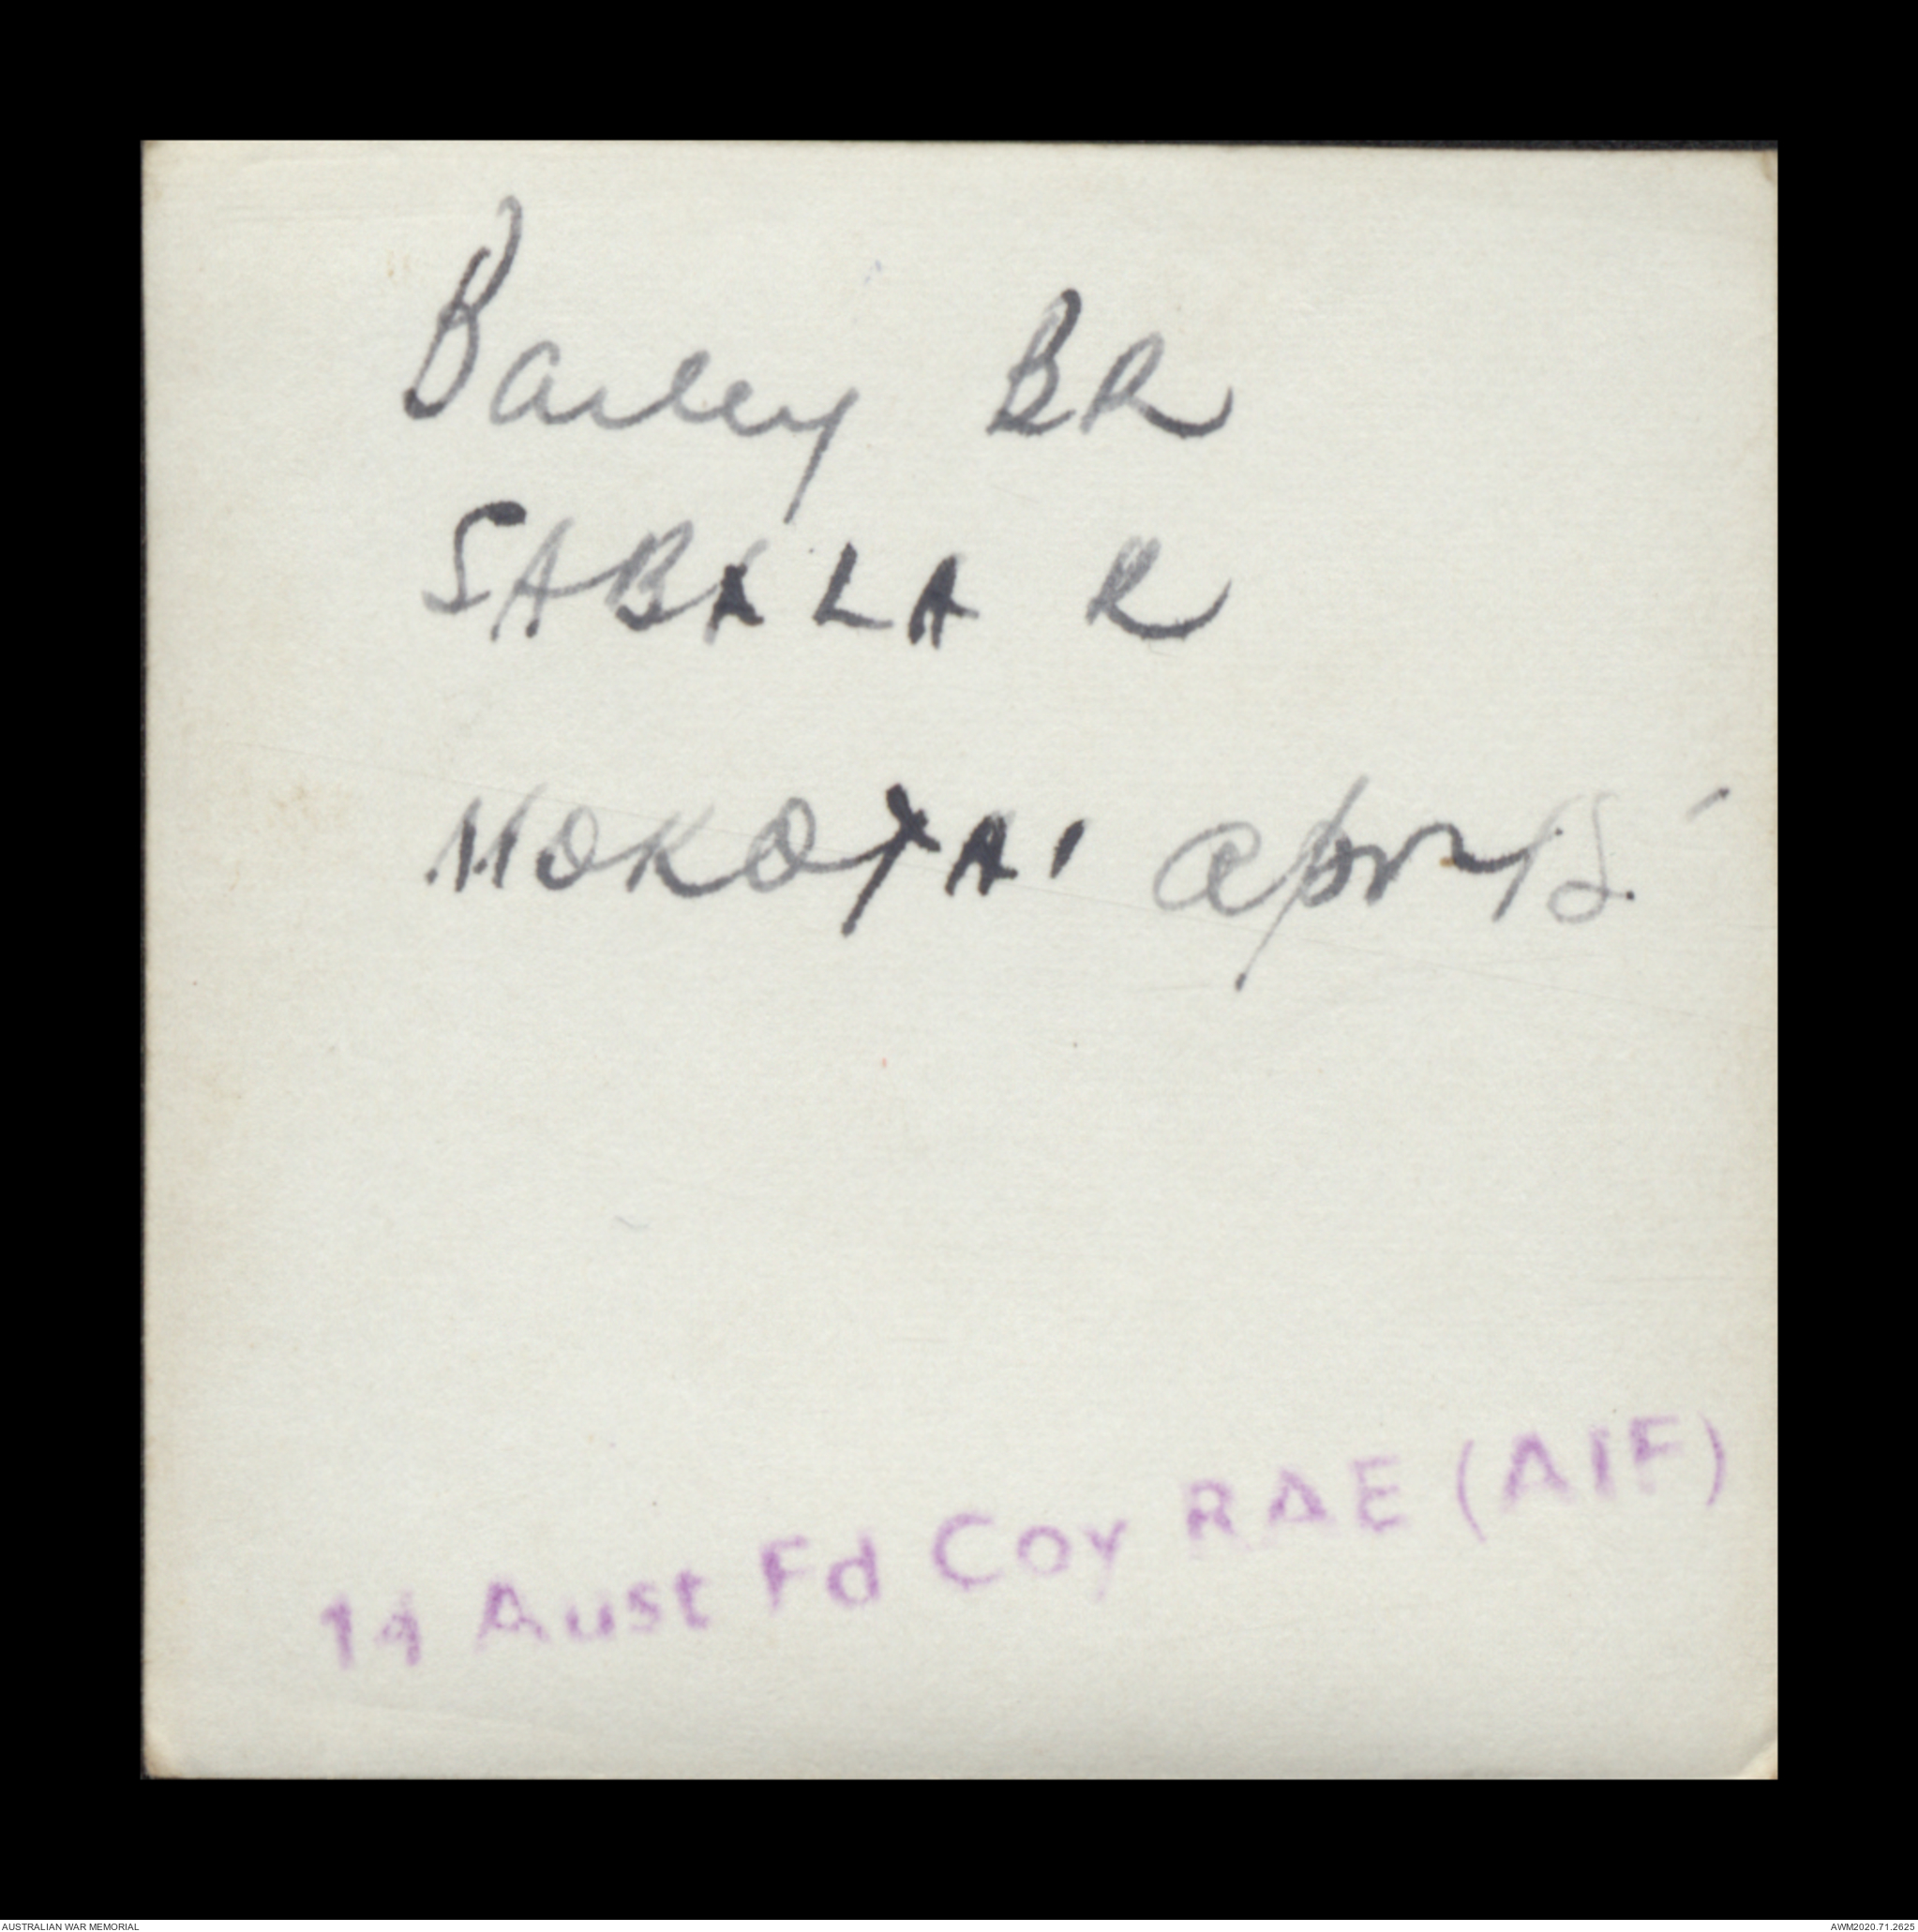 Bailey BR
SABALA R
MOROTAI April 45
14 Aust Fd Coy RAE (AIF)
AUSTRALIAN WAR MEMORIAL
AWM2020.71.2625